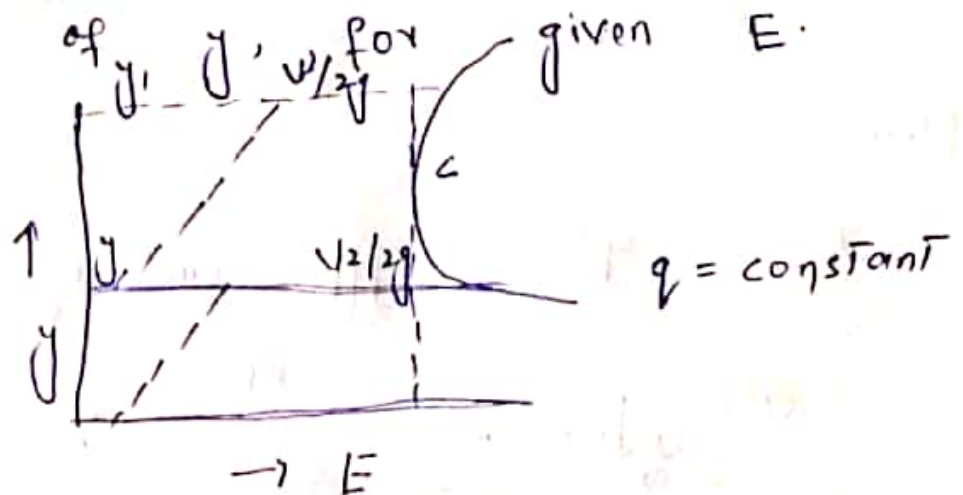 of y, y, for given E.
y, V²/2g
c
↑ y, V2/2g q = constant
y
→ E